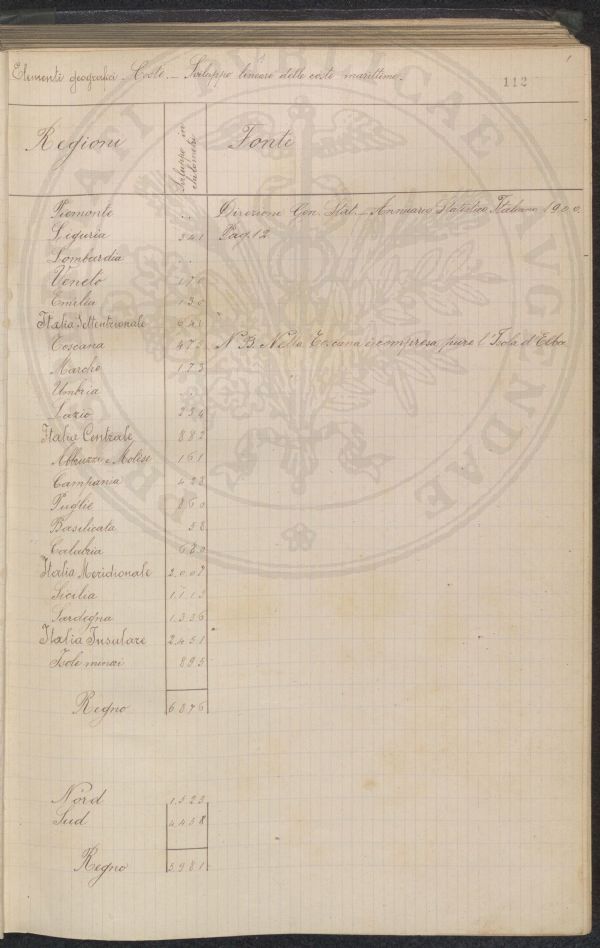 Elementi geografici – Coste. – Sviluppo lineare delle coste marittime.
1
112
Regioni
Sviluppo in chilometri
Fonti
Piemonte . . Direzione Gen. Stat. – Annuario Statistico Italiano 1900.
Liguria 341 Pag. 12
Lombardia . .
Veneto 170
Emilia 130
Italia Settentrionale 641
Toscana 475 N.B. Nella Toscana è compresa pure l'Isola d'Elba
Marche 173
Umbria . .
Lazio 234
Italia Centrale 882
Abbruzzi e Molise 161
Campania
Puglie
Basilicata
Calabria
Italia Meridionale 2.007
Sicilia 1.115
Sardegna 1.336
Italia Insulare 2.451
Isole minori 895
Regno 6876
Nord 1.523
Sud 4.458
Regno 5981
PUBLICAE